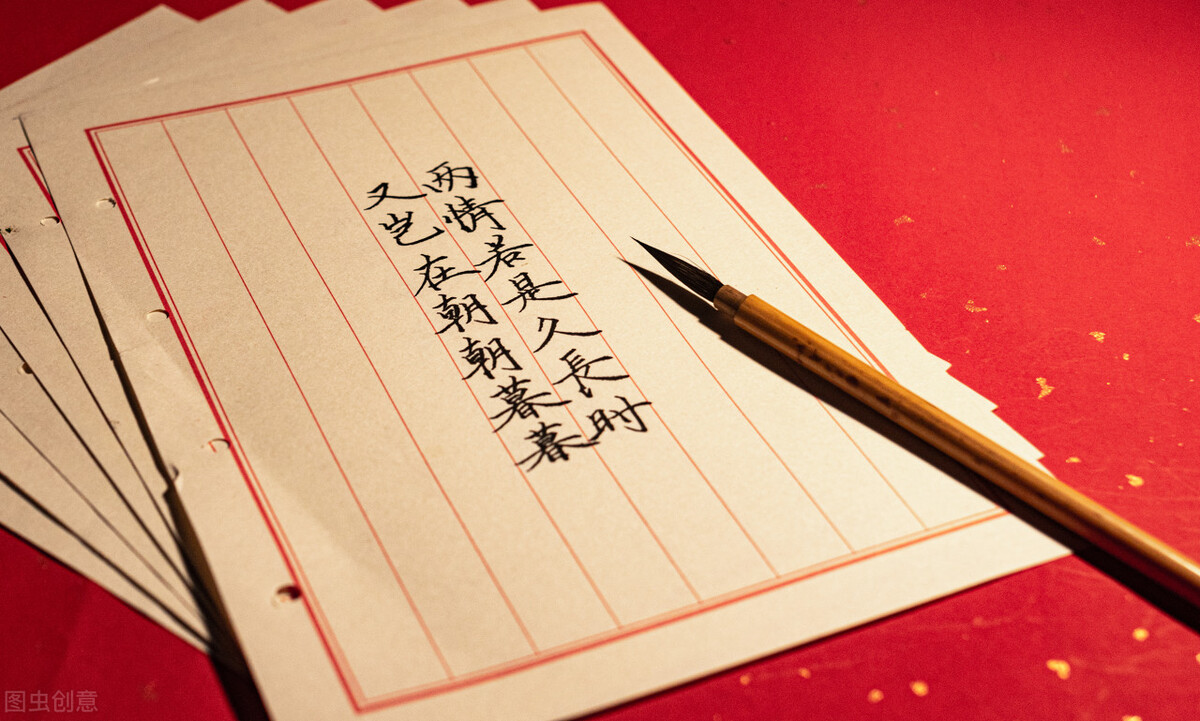 两情若是久長时
又岂在朝朝暮暮
图虫创意